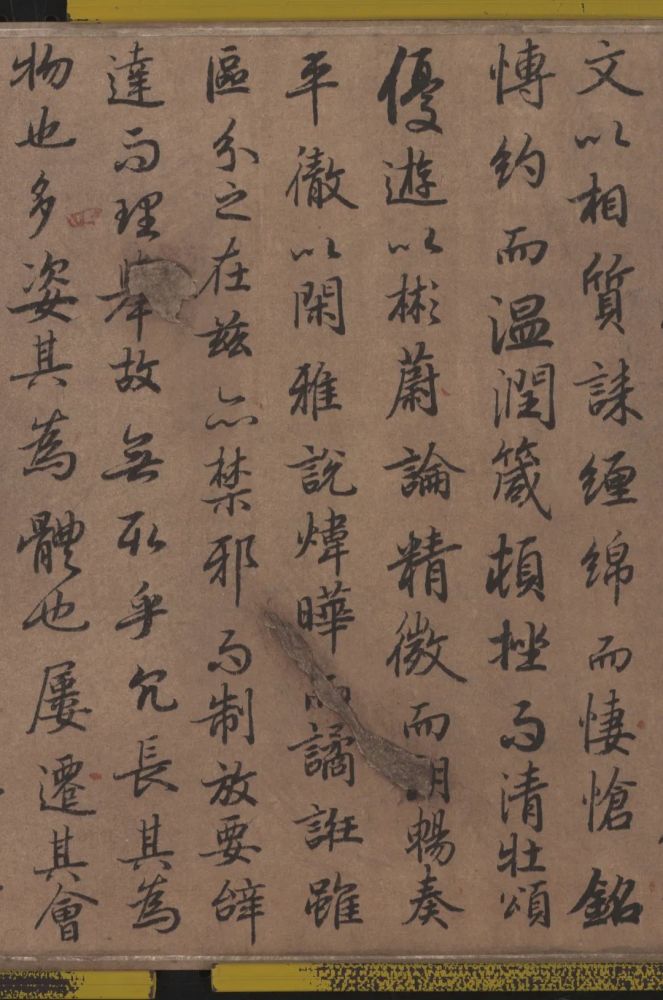 文以相質誄纏綿而悽愴銘
慱約而温潤箴頓挫而清壮頌
優遊以彬蔚論精微而朗暢奏
平徹以閑雅說煒曄而譎誑雖
區分之在兹亦禁邪而制放要辞
達而理舉故無取乎冗長其為
物也多姿其為體也屢遷其會